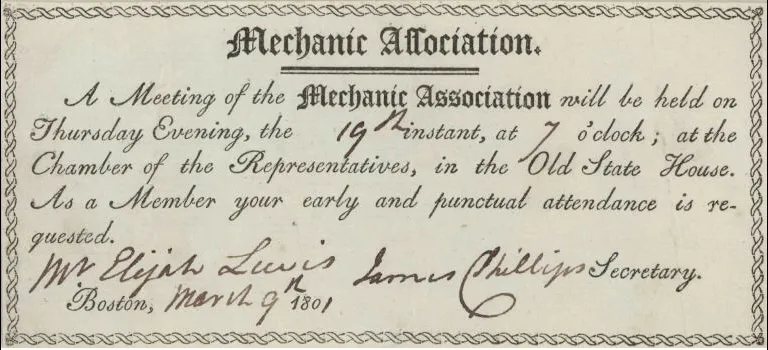 Mechanic Aſſociation.
A Meeting of the Mechanic Association will be held on
Thursday Evening, the 19th instant, at 7 o'clock; at the
Chamber of the Representatives, in the Old State House.
As a Member your early and punctual attendance is re-
quested.
Mr Elijah Lewis James Phillips Secretary.
Boston, March 9th 1801